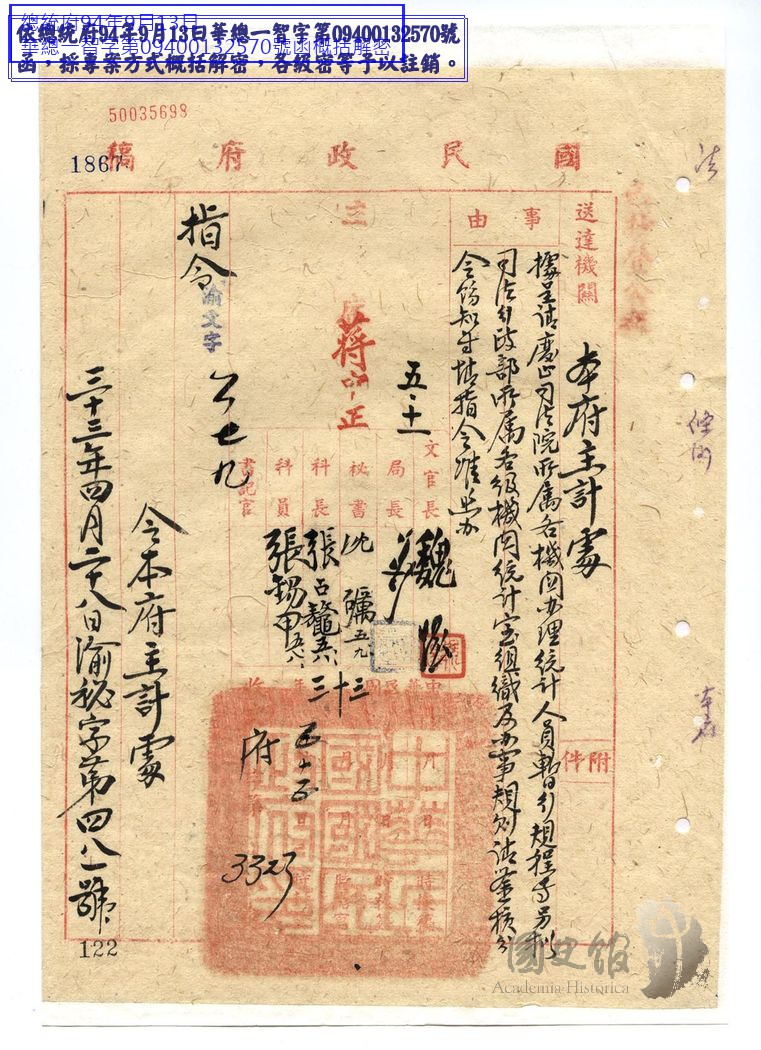 總統府94年9月13日
華總一智字第09400132570號函概括解密
依總統府94年9月13日華總一智字第09400132570號
函，採專案方式概括解密，各級密等予以註銷。
50035698
1867
國民政府稿
送達機關
本府主計處
附件
事由
據呈請廢止司法院所属各機関办理統計人員暫行規程另擬
司法行政部所属各級機関統計室組織及办事規則請鉴核
令飭知等情指令准照办
主
席
蔣中正
五·十一
文官長
魏
局長
秘書
沈
五九
科長
張占鰲
科員
張錫甲
書記官
三十三
五 十五
府
3323
中華民國
指令
渝文字
令本府主計處
三十三年四月二十八日渝秘字第四八一號
122
法
國史館
Academia Historica